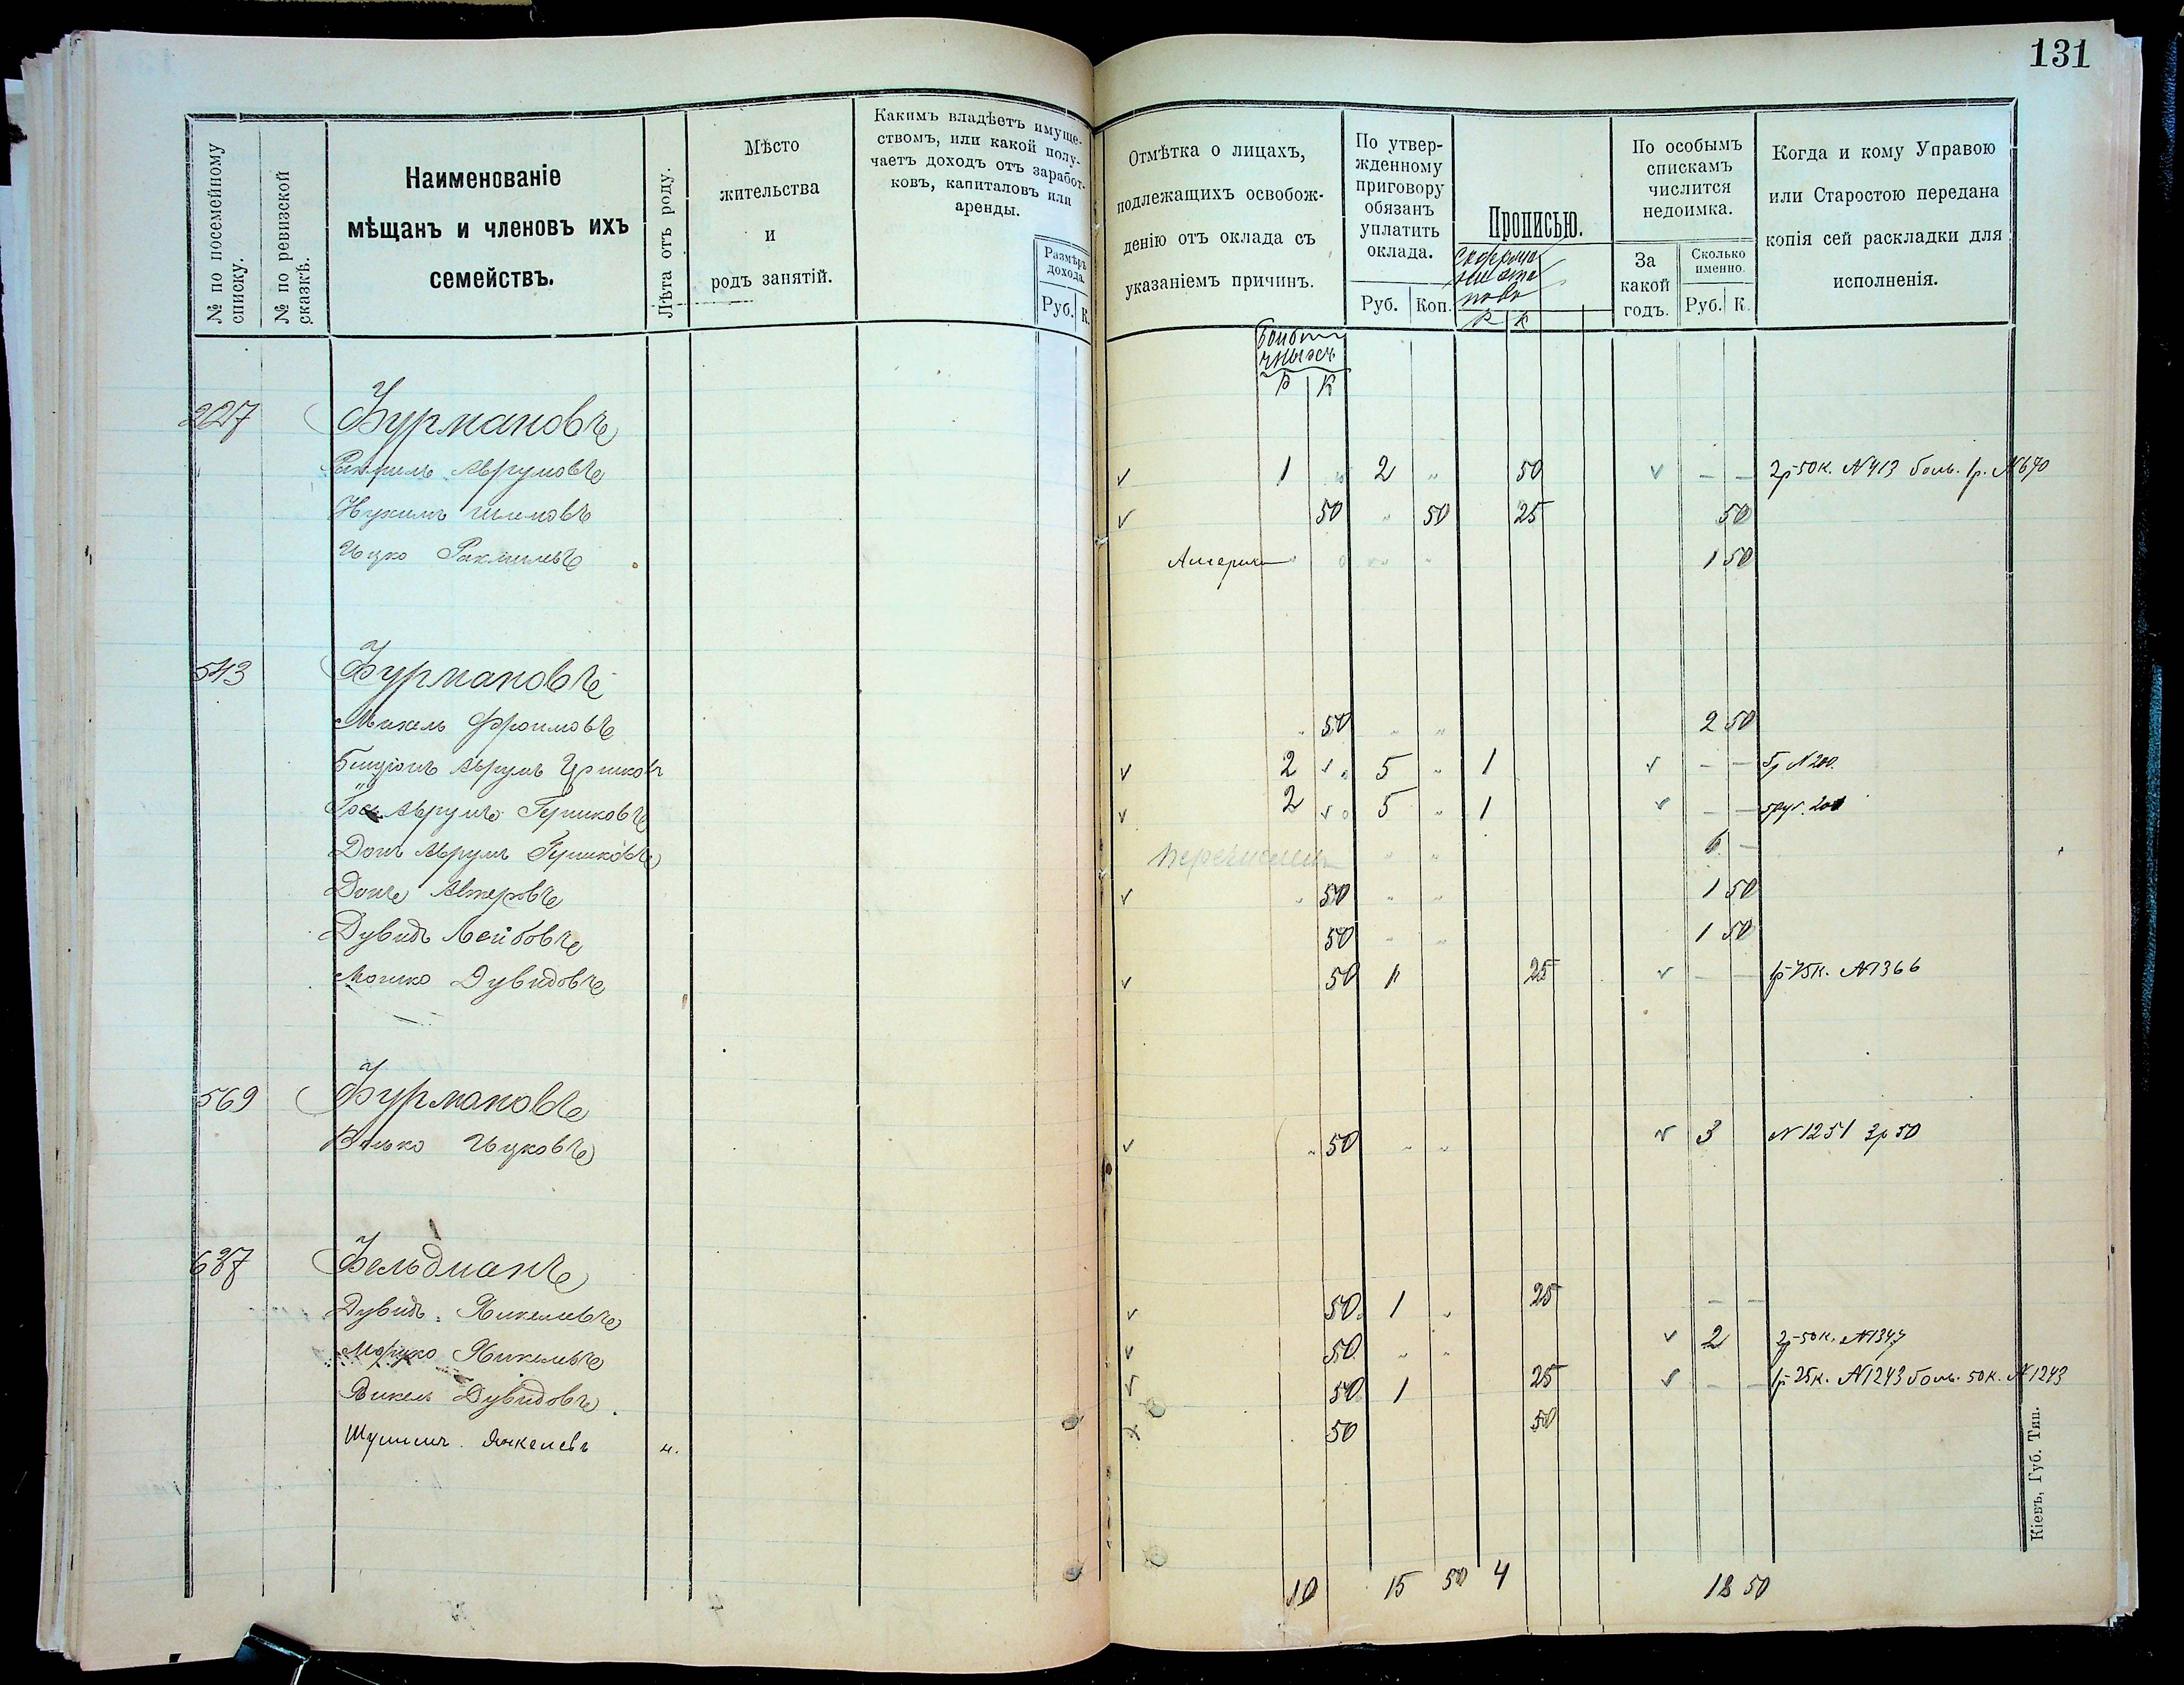 131
№ по посемейному списку.
№ по ревизской сказкѣ.
Наименованіе
мѣщанъ и членовъ ихъ
семействъ.
Лѣта отъ роду.
Мѣсто
жительства
и
родъ занятій.
Какимъ владѣетъ имуще-
ствомъ, или какой полу-
чаетъ доходъ отъ заработ-
ковъ, капиталовъ или
аренды.
Размѣръ
дохода.
Руб. К.
Отмѣтка о лицахъ,
подлежащихъ освобож-
денію отъ оклада съ
указаніемъ причинъ.
По утвер-
жденному
приговору
обязанъ
уплатить
оклада.
Руб. Коп.
Прописью.
Р К
По особымъ
спискамъ
числится
недоимка.
За
какой
годъ.
Сколько
именно.
Руб. К.
Когда и кому Управою
или Старостою передана
копія сей раскладки для
исполненія.
Р К
227 Фурмановъ
Рахмиль Аврумовъ 1 2 " 50 — — 2р 50к. №413 боль. 1р. №670
Нухимъ Шлемовъ 50 " 50 25 50
Ицко Рахмилевъ Америка 1 50
543 Фурмановъ
Михель Фроимовъ " 50 " " 2 50
Аврумъ 2 5 " 1 — — 5р №200.
Аврумъ Гершковъ 2 5 " 1 — —
Донъ Аврумъ Гершковъ перечисленъ " "
Донъ " 50 " " 1 50
Дувидъ Лейбовъ 50 " " 1 50
Мошко Дувидовъ 50 1 25 — — 1р 75к. №1366
569 Фурмановъ
Волько Ицковъ " 50 " " 3 №1251 3р 50
637 Фельдманъ
Дувидъ Янкелевъ 50 1 " 25 — —
Янкелевъ 50 " " 2 2р 50к. №1347
Янкель Дувидовъ 50 1 25 — — 1р 25к. №1243 боль. 50к. №1243
Янкелевъ н. 50 50
10 15 50 4 18 50
Кіевъ, Губ. Тип.